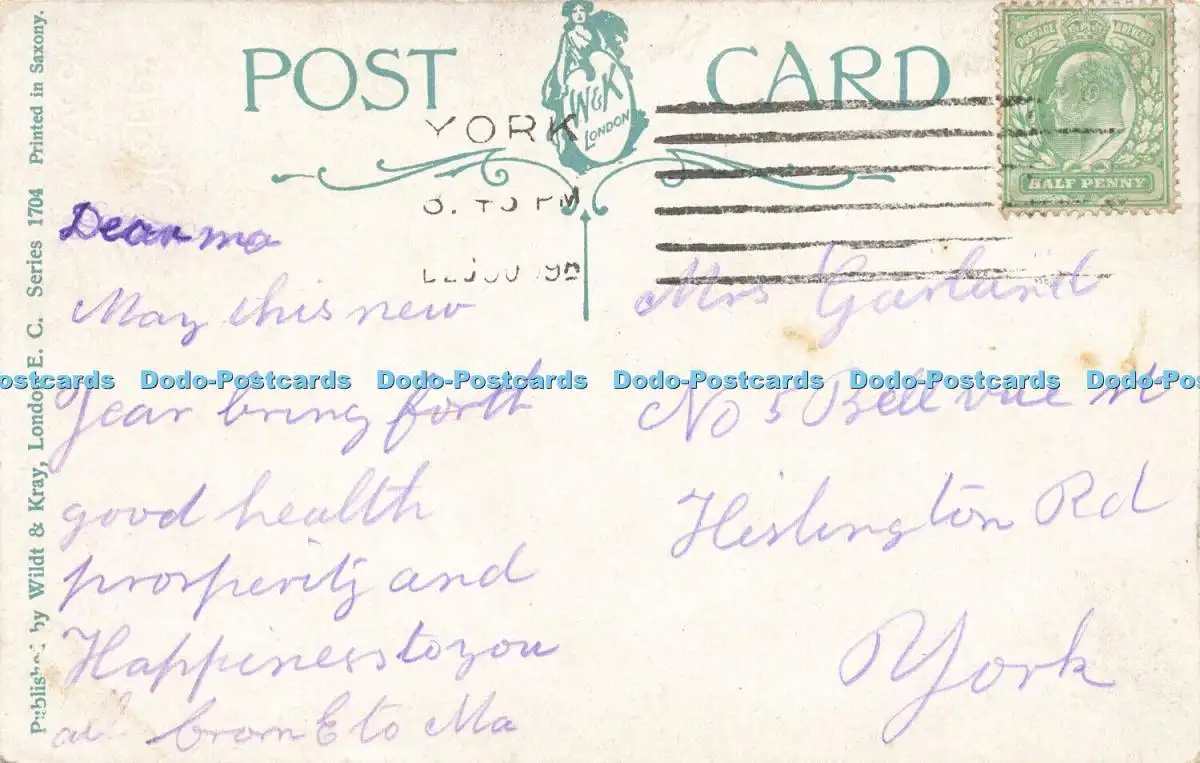 POST CARD
W&K
LONDON
POSTAGE REVENUE
HALF PENNY
YORK
PM
Published by Wildt & Kray, London E. C. Series 1704 Printed in Saxony.
Dear ma
May this new
Year bring forth
good health
prosperity and
Happiness to you
all from E to Ma
Mrs Garland
No 5 Bell vue st
Heslington Rd
York
ostcards Dodo-Postcards Dodo-Postcards Dodo-Postcards Dodo-Postcards Dodo-P